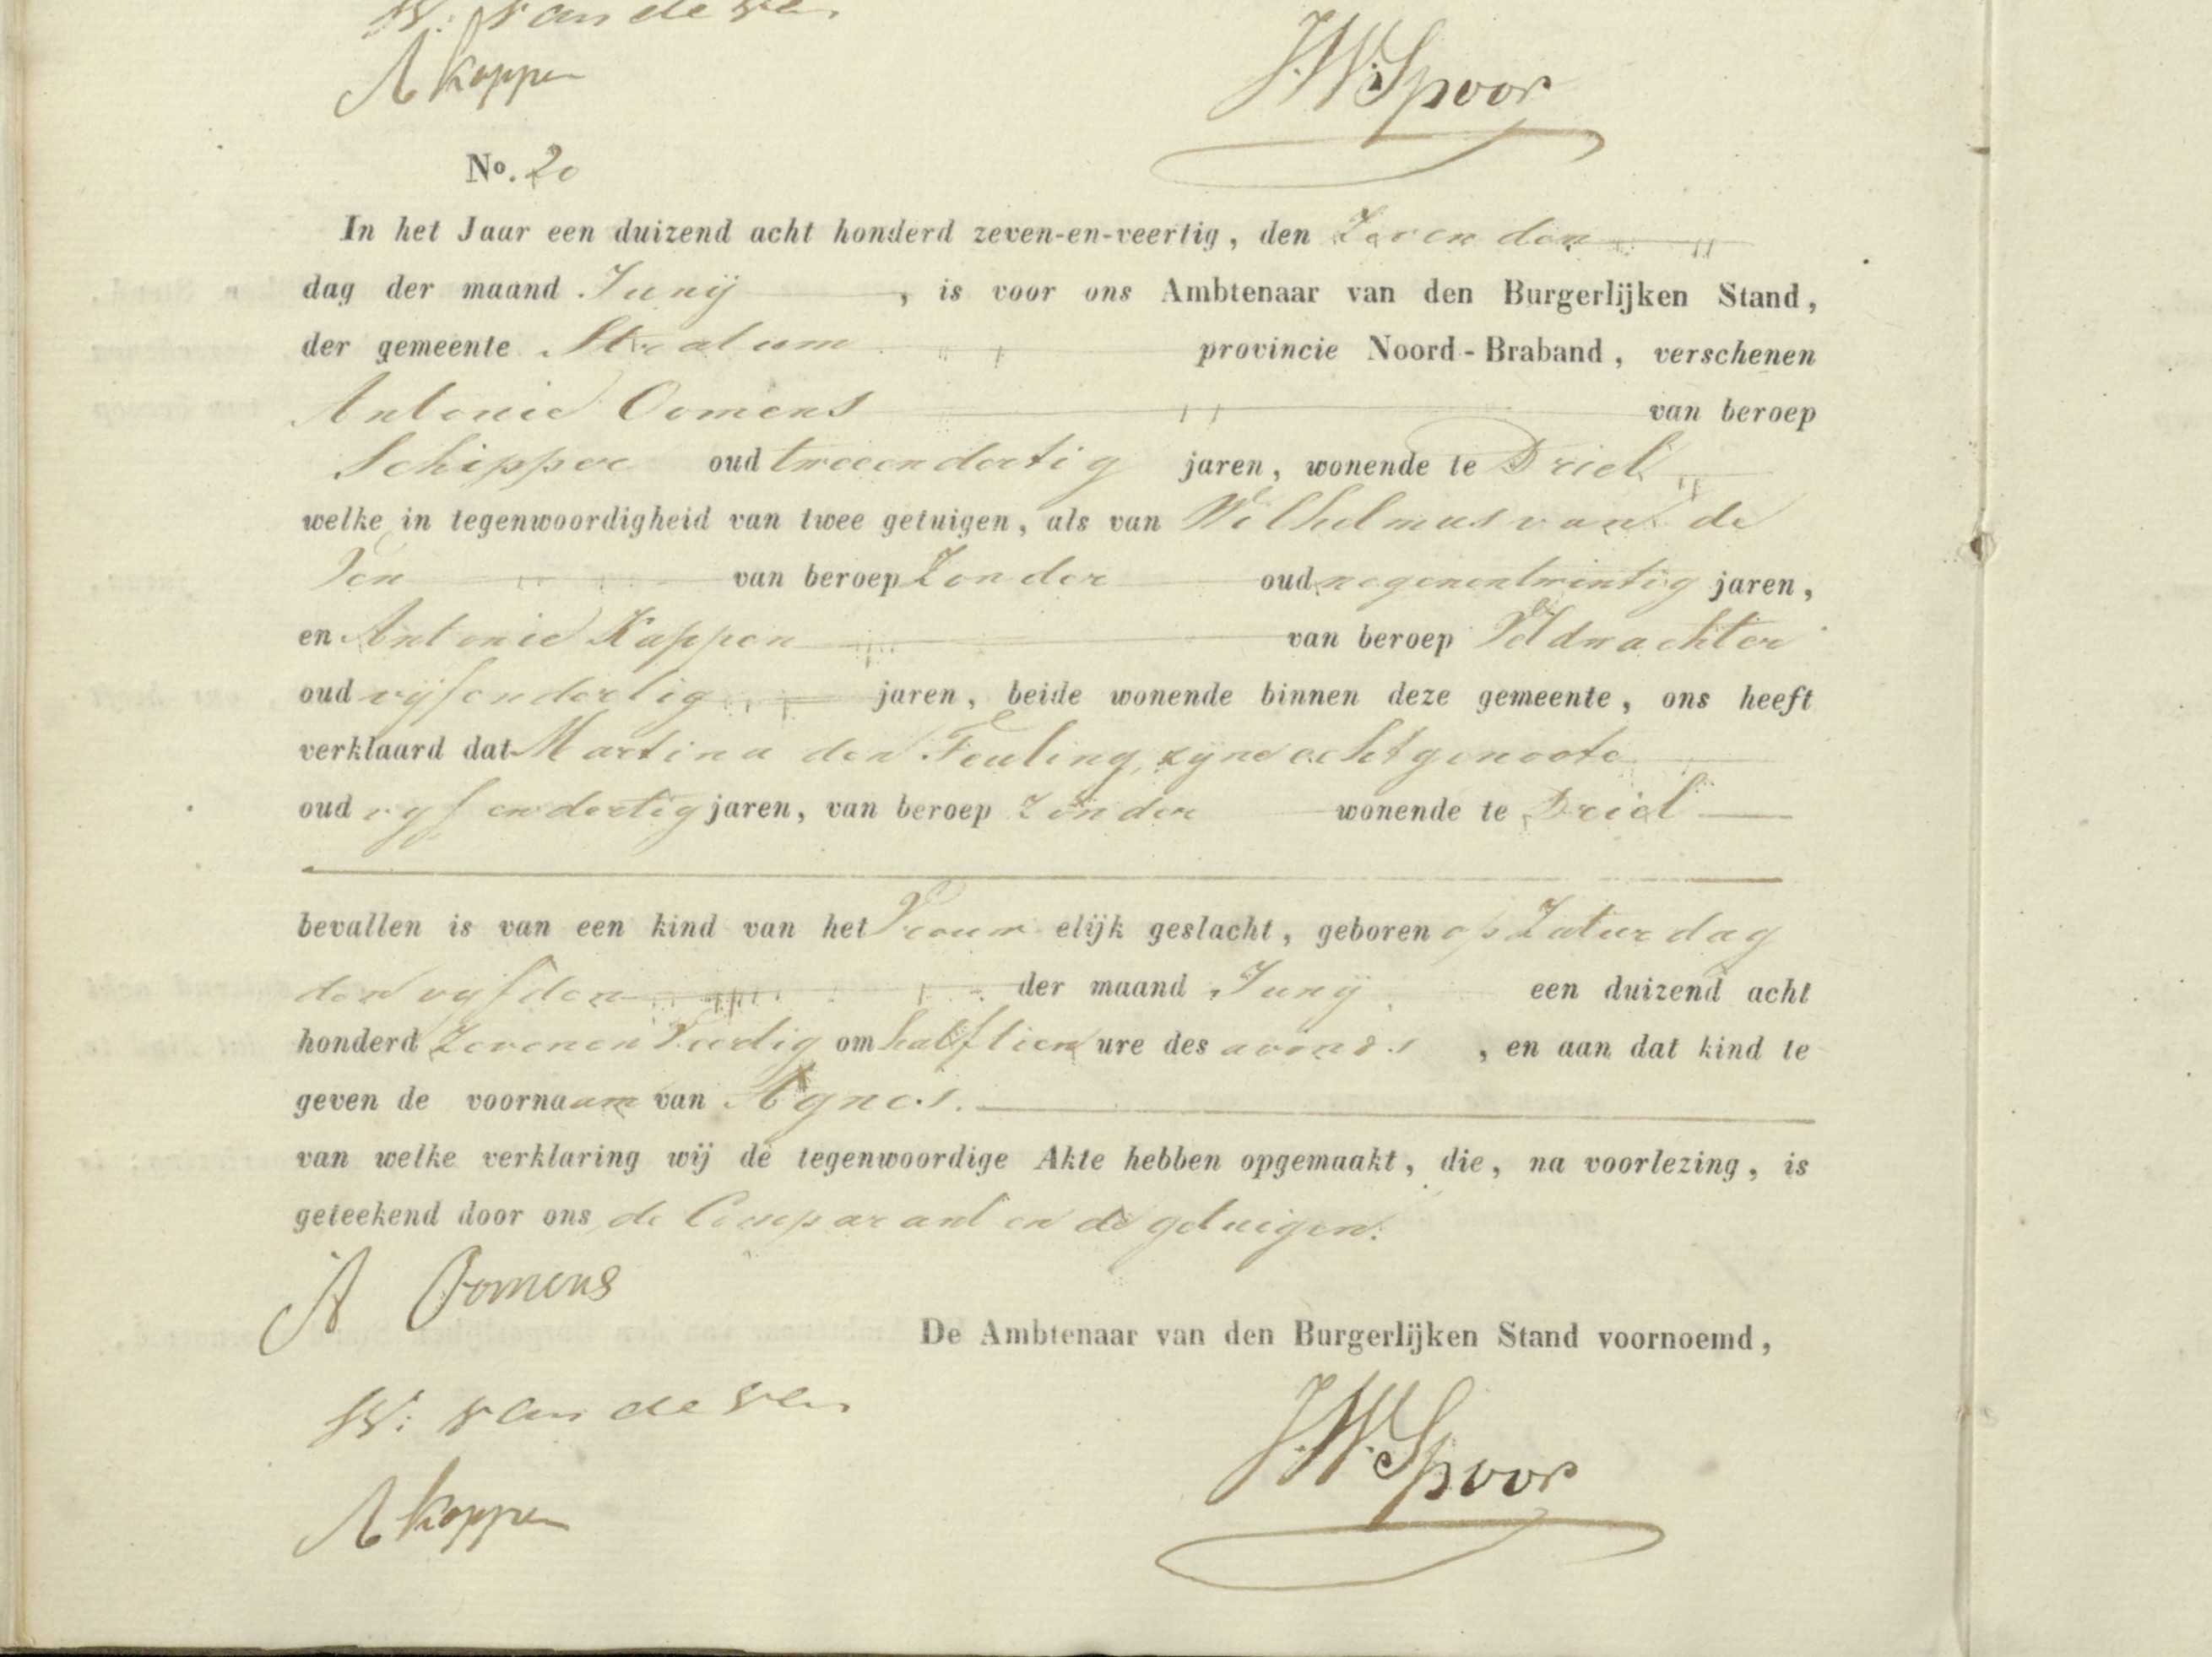 W: van de Ven
A Kappen
J.W. Spoor
No. 20
In het Jaar een duizend acht honderd zeven-en-veertig, den Zevenden
dag der maand Junij, is voor ons Ambtenaar van den Burgerlijken Stand,
der gemeente Stratum provincie Noord-Braband, verschenen
Antonie Oomens van beroep
Schipper oud tweeendertig jaren, wonende te Driel
welke in tegenwoordigheid van twee getuigen, als van Wilhelmus van de
Ven van beroep Zonder oud negenentwintig jaren,
en Antonie Kappen van beroep Veldwachter
oud vijfendertig jaren, beide wonende binnen deze gemeente, ons heeft
verklaard dat Martina den Teuling, zyne echtgenoote
oud vyf en dertig jaren, van beroep Zonder wonende te Driel
bevallen is van een kind van het Vrouw elijk geslacht, geboren op Zaturdag
den vyfden der maand Junij een duizend acht
honderd Zevenenveertig om half tien ure des avonds, en aan dat kind te
geven de voornaam van Agnes.
van welke verklaring wij de tegenwoordige Akte hebben opgemaakt, die, na voorlezing, is
geteekend door ons de Comparant en de getuigen.
A Oomens
De Ambtenaar van den Burgerlijken Stand voornoemd,
W: van de Ven
J.W. Spoor
A Kappen